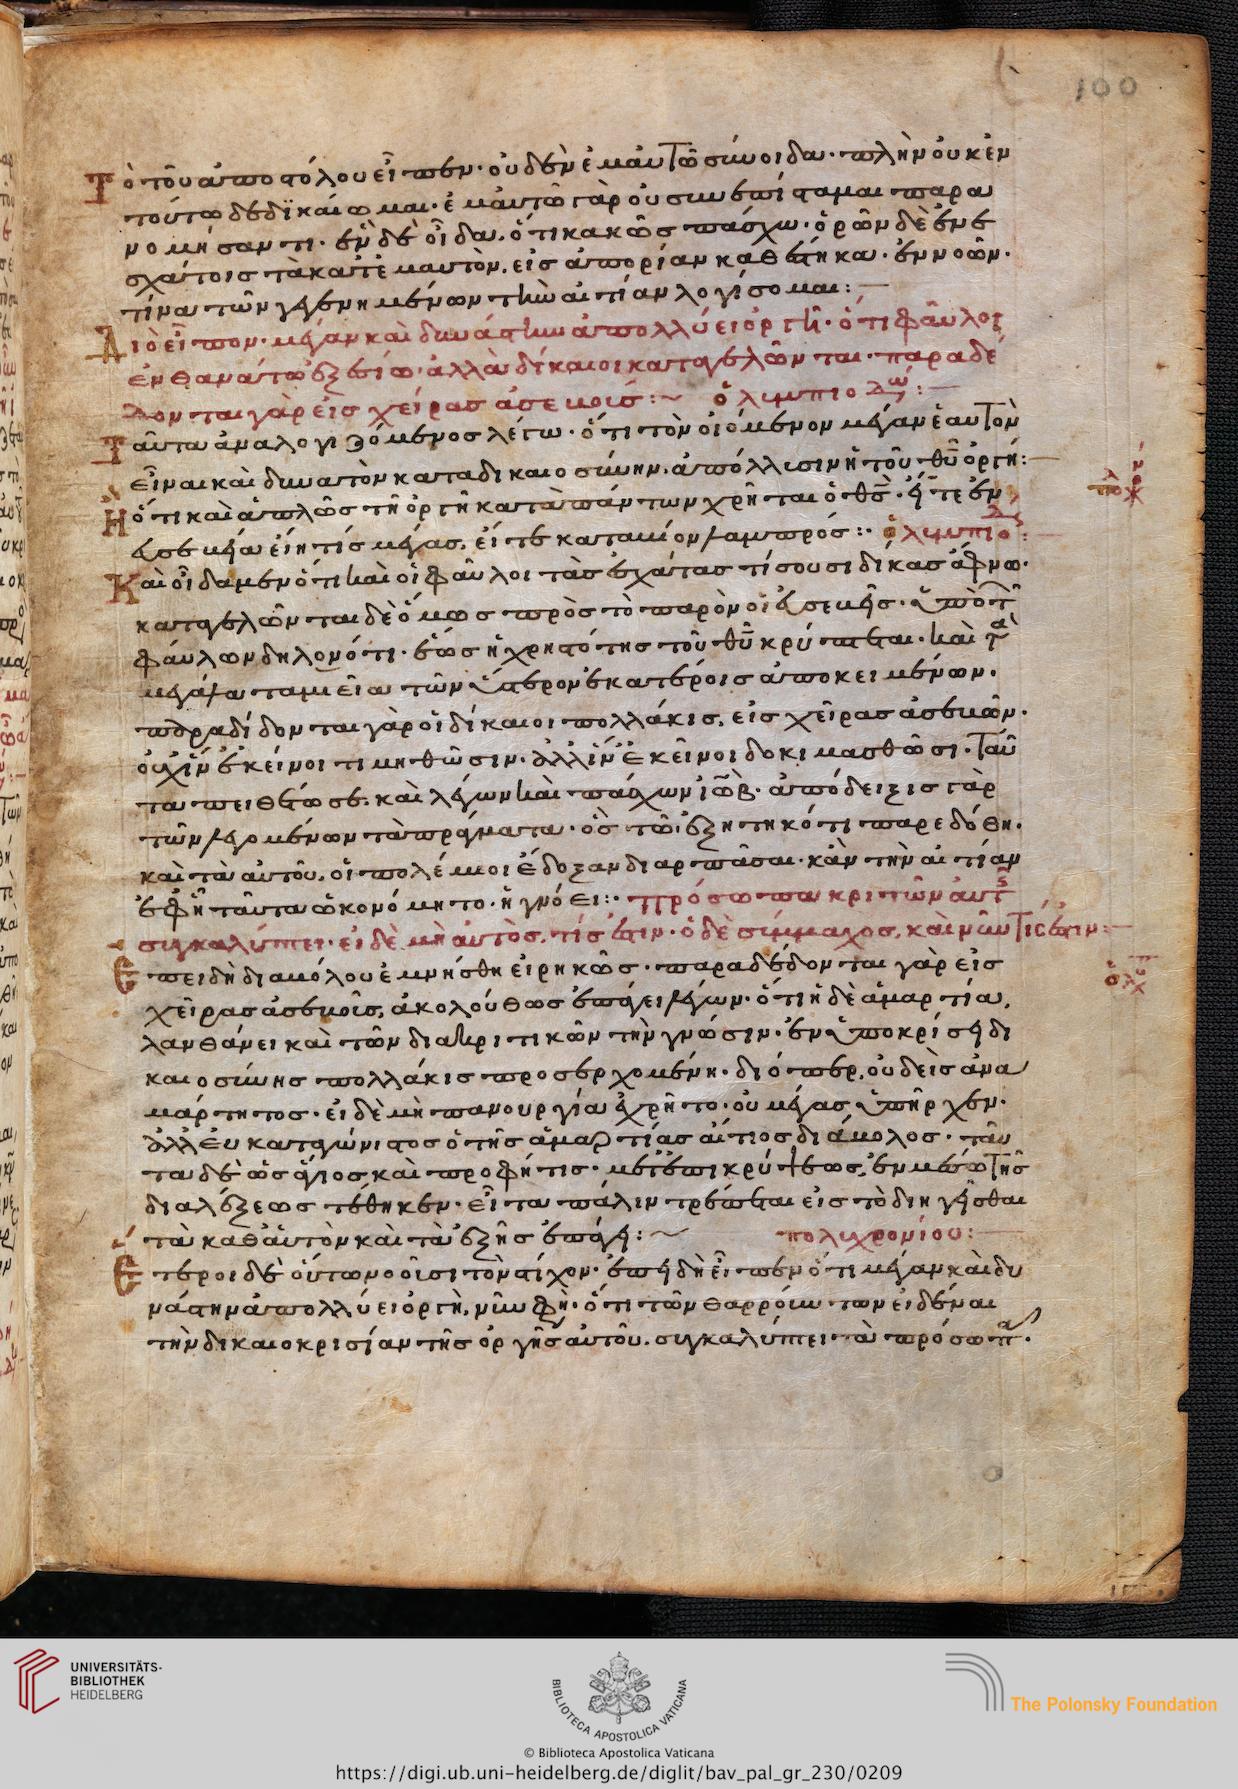 100
Τὸ τοῦ ἀποστόλου εἶπεν· οὐδὲν ἐμαυτῶ σύνοιδα· πλὴν οὐκ ἐν
τούτω δεδϊκαίωμαι· ἐμαυτῶ γὰρ οὐ συνεπίσταμαι παρα
νομήσαντι· ἓν δὲ οἶδα, ὅτι κακῶς πάσχω· ὁρῶν δὲ ἐν ἐ
σχάτοις τὰ κατ' ἐμαυτὸν, εἰς ἀπορίαν καθέστηκα· ἐννοῶν·
τίνα τῶν γεγενημένων τὴν αἰτίαν λογίσομαι:
Διὸ εἶπον· μέγαν καὶ δυνάστην ἀπολλύει ὀργή· ὅτι φαῦλοι
ἐν θανάτω ἐξαισίω· ἀλλὰ δίκαιοι καταγελῶνται· παραδέ
δονται γὰρ εἰς χεῖρας ἀσεβοῖς: ὀλυμπιοδώ:
Ταῦτα ἀναλογιζόμενος λέγω· ὅτι τὸν οἰόμενον μέγαν ἑαυτὸν
εἶναι καὶ δυνατὸν κατα δικαιοσύνην, ἀπόλλυσιν ἡ τοῦ θῦ ὀργή:
Ἢ ὅτι καὶ ἁπλῶς τῆ ὀργῆ κατὰ πάντων χρῆται ὁ θς·
εἴη τίς μέγας, εἴτε κατα βίον λαμπρός: ὀλυμπιο
Καὶ οἶδαμεν ὅτι καὶ οἱ φαῦλοι τὰς ἐσχάτας τίσουσι δίκας ἄφνω·
καταγελῶνται δὲ ὅμως πρὸς τὸ παρὸν οἱ εὐσεβεῖς· ὑπὸ τ
φαύλων δηλονότι· ἕως ἡ χρηστότης τοῦ θῦ κρύπτεται· καὶ τ
μεγάλα ταμιεῖα τῶν ὕστερον ἑκατέροις ἀποκειμένων·
παραδίδονται γὰρ οἱ δίκαιοι πολλάκις, εἰς χεῖρας ἀσεβῶν·
οὐχ ἵν' ἐκεῖνοι τιμηθῶσιν· ἀλλ' ἵν' ἐκεῖνοι δοκιμασθῶσι· ταῦ
τα πειθέτω σε, καὶ λέγων καὶ πάσχων ἰώβ· ἀπόδειξις γὰρ
τῶν λεγομένων τὰ πράγματα· ὃς τῶ ἐξητηκότι παρεδόθη·
καὶ τὰ αὐτοῦ, οἱ πολέμιοι ἔδοξαν διαρπᾶσαι· κἂν τὴν αἰτίαν
ἐφ' ἧ ταῦτα ὠκονόμητο, ἠγνόει: πρόσωπα κριτῶν αὐτ
συγκαλύπτει· εἰ δὲ μὴ αὐτὸς, τίς ἐστιν· ὁ δὲ σύμμαχος, καὶ νῦν τίς ἐστιν:
Ἐπειδὴ διαβόλου ἐμνήσθη εἰρηκὼς· παραδέδονται γὰρ εἰς
χεῖρας ἀσεβοῖς, ἀκολούθως ἐπάγει λέγων· ὅτι ἡ δὲ ἁμαρτία,
λανθάνει καὶ τῶν διακριτικῶν τὴν γνῶσιν· ἐν ὑποκρίσει δι
καιοσύνης πολλάκις προσερχομένη· διόπερ, οὐδεὶς ἀνα
μάρτητος· εἰ δὲ μὴ πανουργία ἐχρῆτο· οὐ μέγας ὑπῆρχεν·
ἀλλ' εὐκαταγώνιστος ὁ τῆς ἁμαρτίας αἴτιος διάβολος· ταῦ
τα δὲ ὡς ἅγιος καὶ προφήτης· μετ' ἐπικρύψεως, ἐν μέσω τῆς
διαλέξεως τέθηκεν· εἶτα πάλιν τρέπεται εἰς τὸ διηγεῖσθαι
τὰ καθ' ἑαυτὸν καὶ τὰ ἑξῆς ἐπάγει: πολυχρονίου:
Ἕτεροι δὲ οὕτω νοοῦσι τὸν στίχον· ἐπειδὴ εἶπεν ὅτι μέγαν καὶ δυ
νάστην ἀπολλύει ὀργὴ, νῦν φησὶ· ὅτι τῶν θαρρούντων εἰδέναι
τὴν δικαιοκρισίαν τῆς ὀργῆς αὐτοῦ, συγκαλύπτει τὰ πρόσωπ·
UNIVERSITÄTS-
BIBLIOTHEK
HEIDELBERG
BIBLIOTECA APOSTOLICA VATICANA
The Polonsky Foundation
© Biblioteca Apostolica Vaticana
https://digi.ub.uni-heidelberg.de/diglit/bav_pal_gr_230/0209